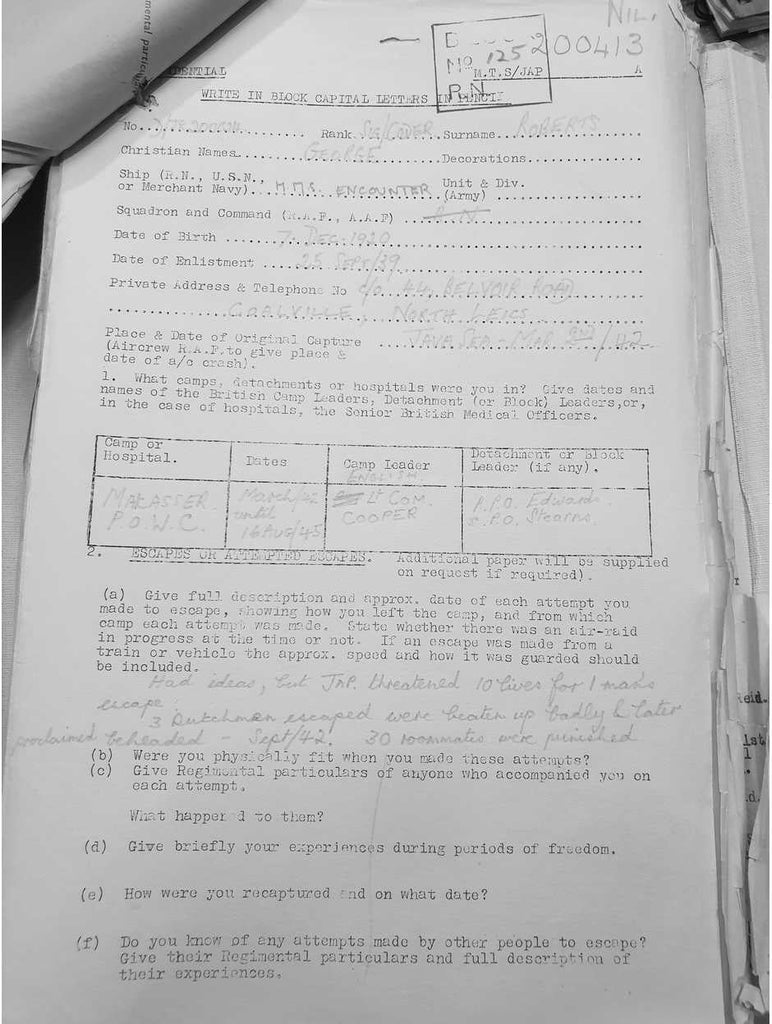 mental particu
NIL.
No 125
200413
DENTIAL
M.T.S/JAP A
R.N
WRITE IN BLOCK CAPITAL LETTERS IN PENCIL
No. Rank Surname ROBERTS
Christian Names GEORGE Decorations
Ship (R.N., U.S.N., or Merchant Navy) H.M.S. ENCOUNTER Unit & Div. (Army)
Squadron and Command (R.A.F., A.A.F) R.N
Date of Birth 7 DEC. 1920
Date of Enlistment 25 SEPT/39
Private Address & Telephone No c/o 44, BELVOIR ROAD
COALVILLE, NORTH LEICS
Place & Date of Original Capture JAVA SEA - MAR /42
(Aircrew R.A.F. to give place &
date of a/c crash).
1. What camps, detachments or hospitals were you in? Give dates and
names of the British Camp Leaders, Detachment (or Block) Leaders, or,
in the case of hospitals, the Senior British Medical Officers.
Camp or Hospital. Dates Camp Leader Detachment or Block Leader (if any).
MAKASSER P.O.W.C. March/42 until 16 AUG/45 ENGLISH Lt COM. COOPER A.P.O. Edwards P.O. Stearns
2. ESCAPES OR ATTEMPTED ESCAPES. Additional paper will be supplied
on request if required).
(a) Give full description and approx. date of each attempt you
made to escape, showing how you left the camp, and from which
camp each attempt was made. State whether there was an air-raid
in progress at the time or not. If an escape was made from a
train or vehicle the approx. speed and how it was guarded should
be included.
Had ideas, but JAP. threatened 10 lives for 1 mans
escape.
3 Dutchmen escaped were beaten up badly & later
proclaimed beheaded - Sept/42. 30 roommates were punished
(b) Were you physically fit when you made these attempts?
(c) Give Regimental particulars of anyone who accompanied you on
each attempt.
What happened to them?
(d) Give briefly your experiences during periods of freedom.
(e) How were you recaptured and on what date?
(f) Do you know of any attempts made by other people to escape?
Give their Regimental particulars and full description of
their experiences.